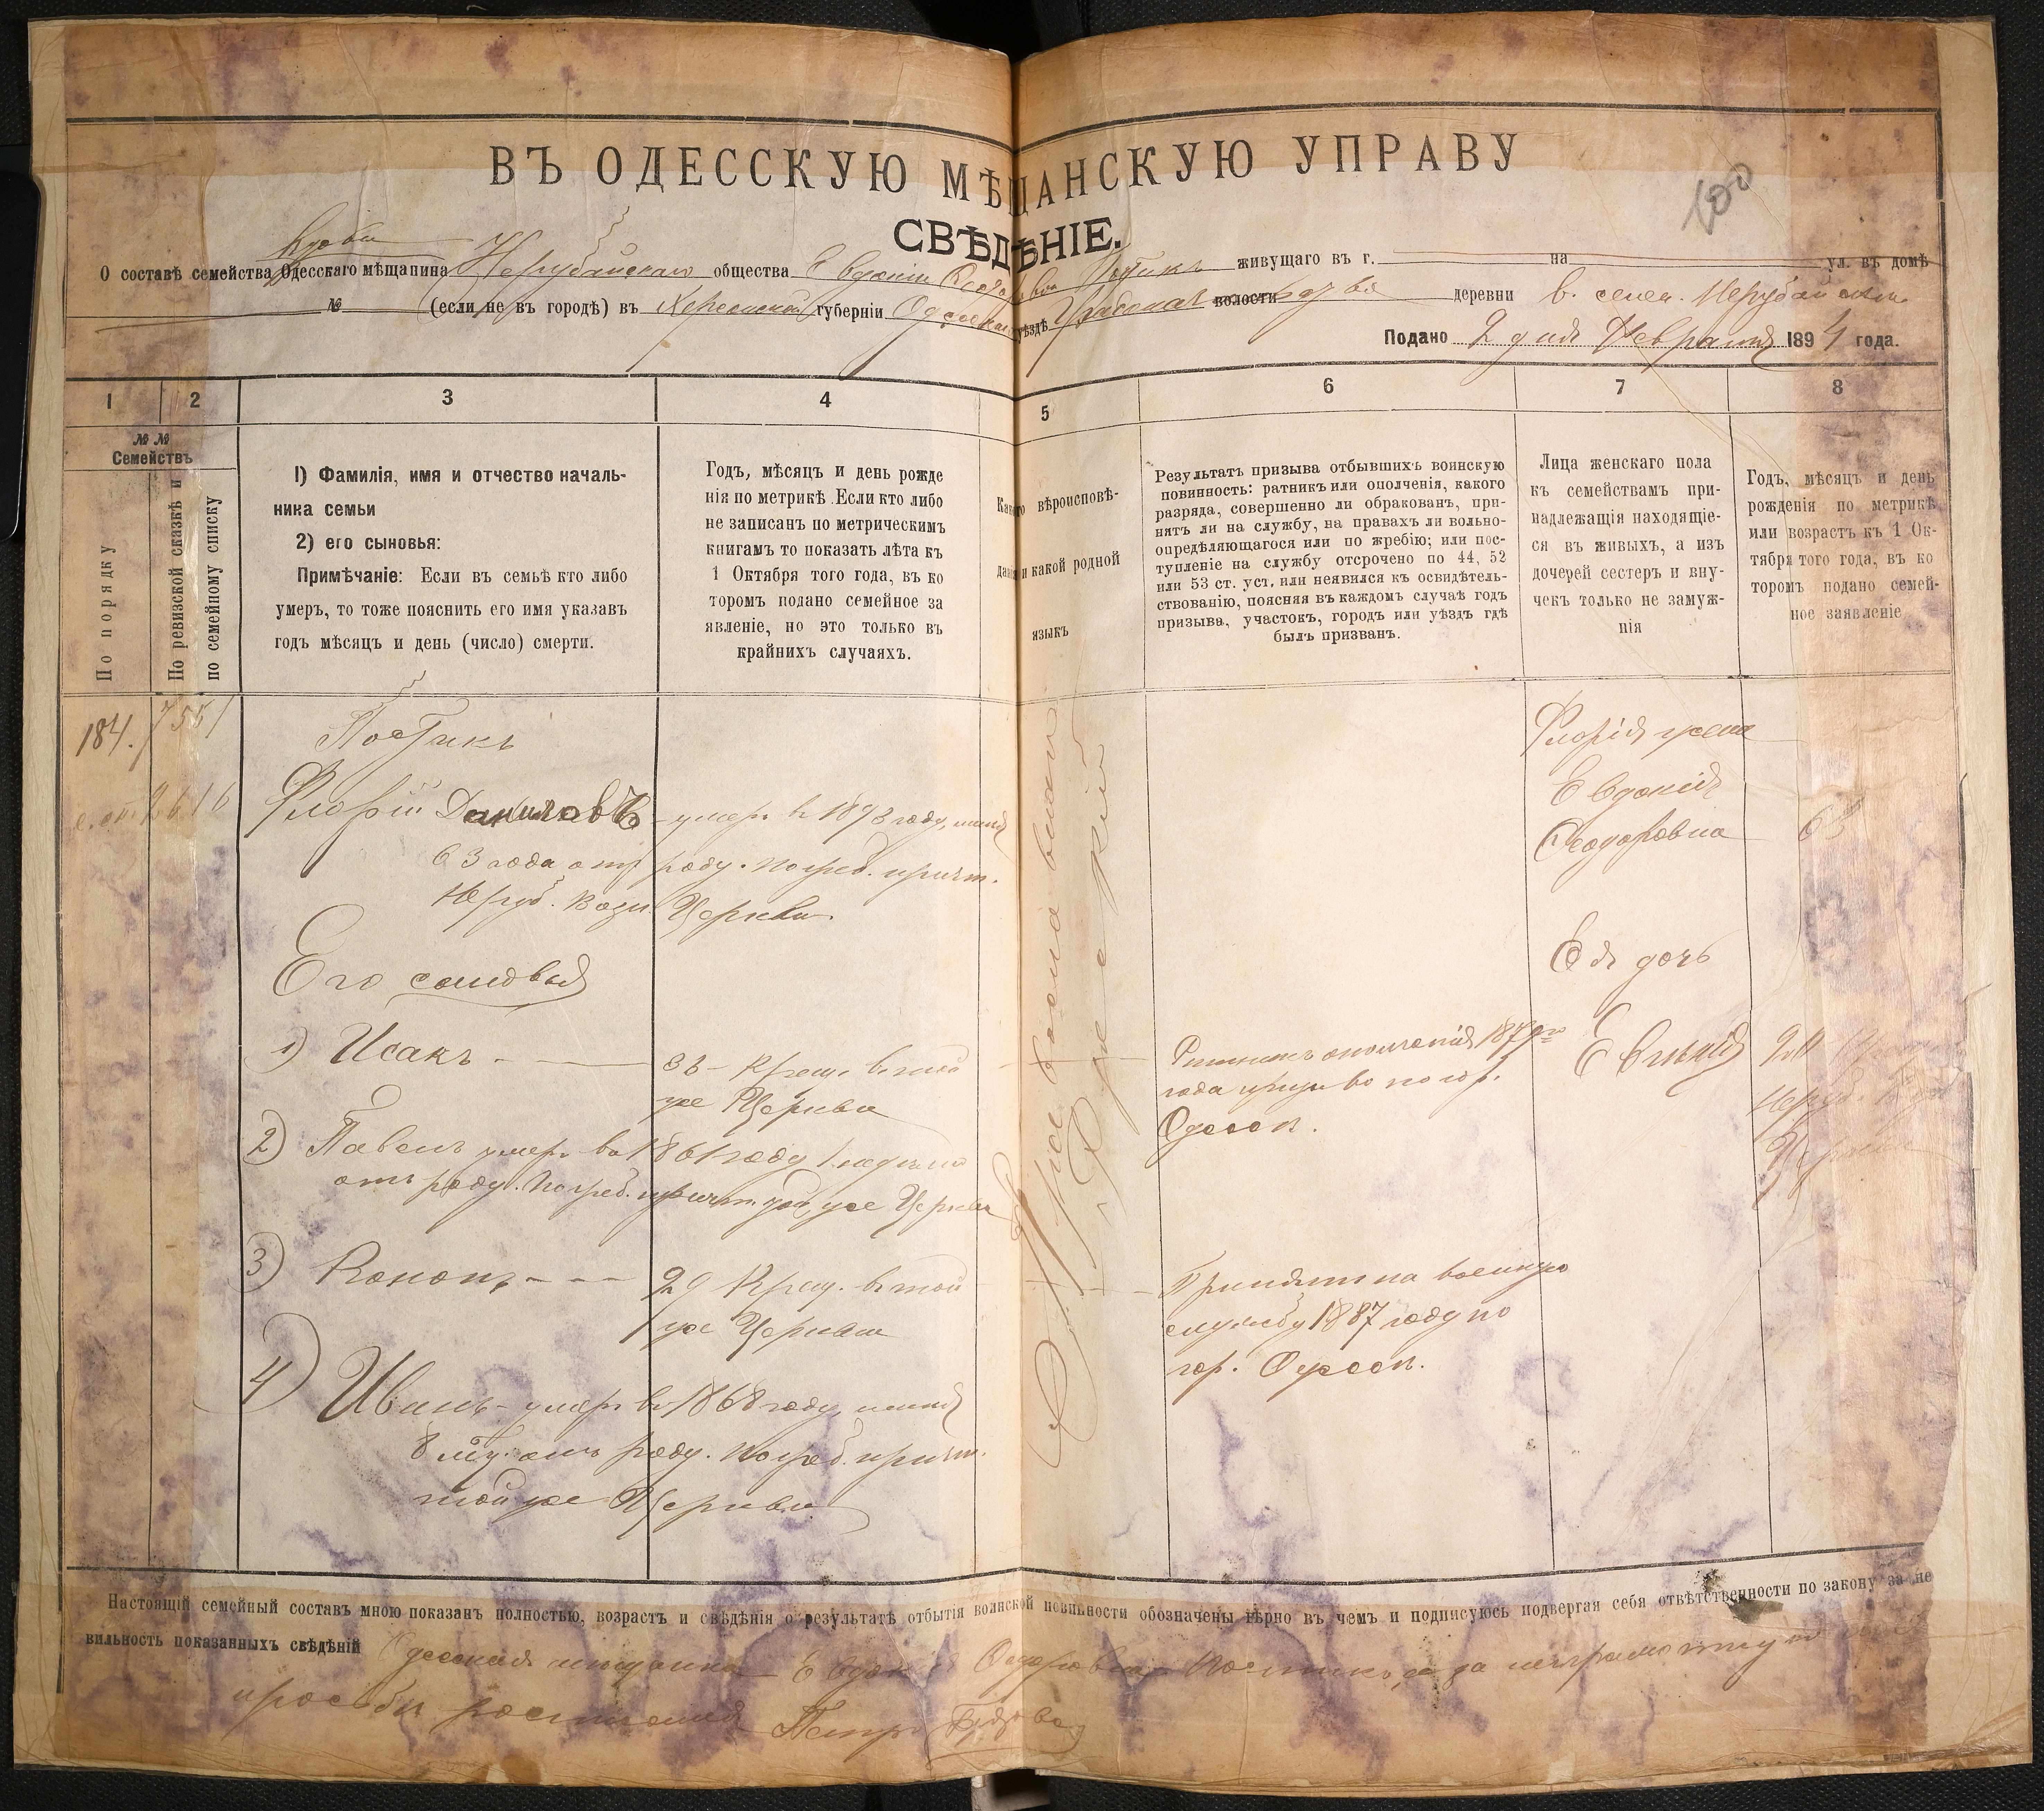 ВЪ ОДЕССКУЮ МѢЩАНСКУЮ УПРАВУ
100
СВѢДѢНІЕ.
О составѣ семейства Одесскаго мѣщанина Нерубайскаго общества Евдокіи живущаго въ г. на ул. въ домѣ
№ (если не въ городѣ) въ Херсонской губерніи Одесскаго уѣздѣ волости деревни в. селен. Нерубайскомъ
Подано 2 дня Февраля 1894 года.
1 2 3 4 5 6 7 8
№ №
Семействъ
По порядку
По ревизской сказкѣ и
по семейному списку
1) Фамилія, имя и отчество началь-
ника семьи
2) его сыновья:
Примѣчаніе: Если въ семьѣ кто либо
умеръ, то тоже пояснить его имя указавъ
годъ мѣсяцъ и день (число) смерти.
Годъ, мѣсяцъ и день рожде
нія по метрикѣ. Если кто либо
не записанъ по метрическимъ
книгамъ то показать лѣта къ
1 Октября того года, въ ко
торомъ подано семейное за
явленіе, но это только въ
крайнихъ случаяхъ.
Какого вѣроисповѣ-
данія и какой родной
языкъ
Результатъ призыва отбывшихъ воинскую
повинность: ратникъ или ополченія, какого
разряда, совершенно ли обракованъ, при-
нятъ ли на службу, на правахъ ли вольно-
опредѣляющагося или по жребію; или пос-
тупленіе на службу отсрочено по 44, 52
или 53 ст. уст. или неявился къ освидѣтель-
ствованію, поясняя въ каждомъ случаѣ годъ
призыва, участокъ, городъ или уѣздъ гдѣ
былъ призванъ.
Лица женскаго пола
къ семействамъ при-
надлежащія находящіе-
ся въ живыхъ, а изъ
дочерей сестеръ и вну-
чекъ только не замуж-
нія
Годъ, мѣсяцъ и день
рожденія по метрикѣ
или возрастъ къ 1 Ок-
тября того года, въ ко
торомъ подано семей-
ное заявленіе
184. 7551
2616
Постикъ
Флорій Даниловъ умеръ въ 1893 году, имѣя
63 года отъ роду. Погреб. причт.
Неруб. Каз. Церкви.
Его сыновья
1) Исакъ
33 - Крещ. въ той
же Церкви
2) Павелъ умеръ въ 1861 году
отъ роду. Погреб. причт. той же Церкви
3) Кононъ
29 Крещ. въ той
же Церкви
4) Иванъ умеръ въ 1868 году, имѣя
8 отъ роду. Погреб. причт.
той же Церкви
Православнаго
Русскій
Ратникъ ополченія 1879го
года призыва по гор.
Одессѣ.
Принятъ на военную
службу 1887 году по
гор. Одессѣ.
Флорія жена
Евдокія
Феодоровна 63
Ея дочь
Евгенія
Неруб.
Церкви
Настоящій семейный составъ мною показанъ полностью, возрастъ и свѣдѣнія о результатѣ отбытія воинской повинности обозначены вѣрно въ чемъ и подписуюсь подвергая себя отвѣтственности по закону за не
вильность показанныхъ свѣдѣній Одесская мѣщанка Евдокія Федоровна Постикъ, а за неграмотную
просьбѣ росписался Петръ